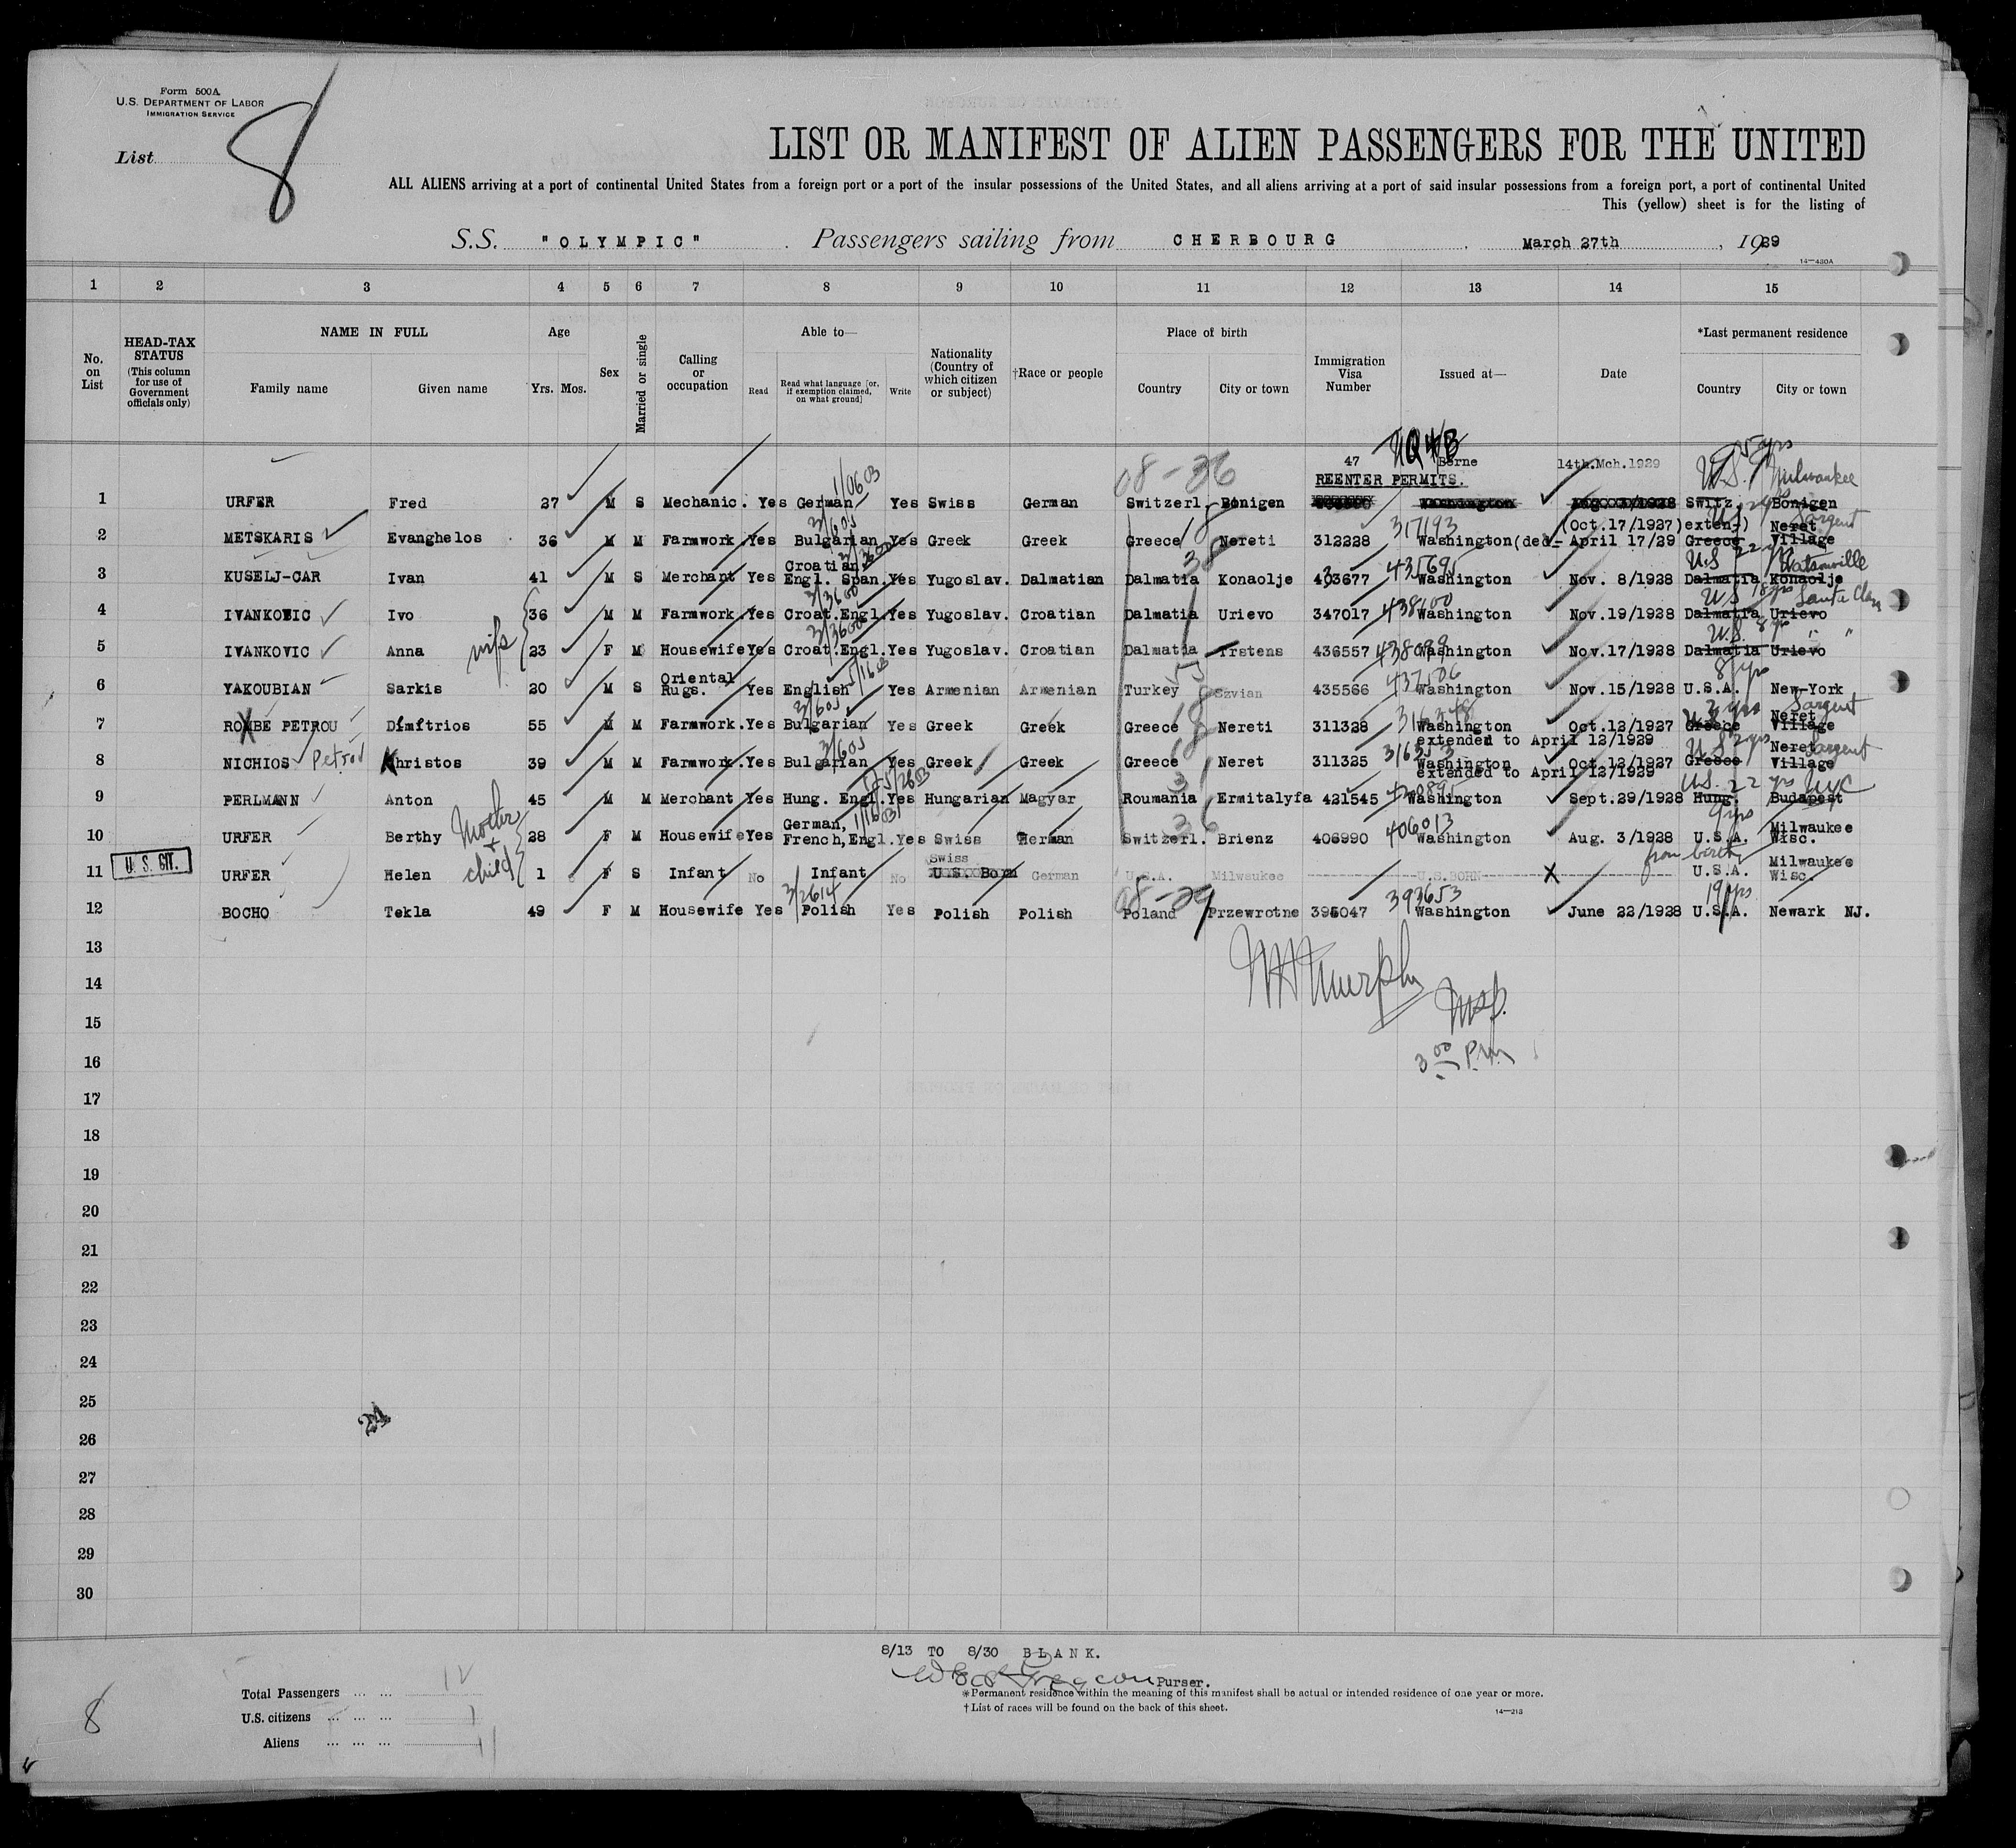 Form 500A
U.S. DEPARTMENT OF LABOR
IMMIGRATION SERVICE
List 8
LIST OR MANIFEST OF ALIEN PASSENGERS FOR THE UNITED
ALL ALIENS arriving at a port of continental United States from a foreign port or a port of the insular possessions of the United States, and all aliens arriving at a port of said insular possessions from a foreign port, a port of continental United
This (yellow) sheet is for the listing of
S.S. "OLYMPIC" . Passengers sailing from CHERBOURG . March 27th , 1929
14—430A
1 2 3 4 5 6 7 8 9 10 11 12 13 14 15
No. on List
HEAD-TAX STATUS
(This column for use of Government officials only)
NAME IN FULL
Family name Given name
Age
Yrs. Mos.
Sex
Married or single
Calling or occupation
Able to—
Read
Read what language [or, if exemption claimed, on what ground]
Write
Nationality (Country of which citizen or subject)
†Race or people
Place of birth
Country City or town
Immigration Visa Number
Issued at—
Date
*Last permanent residence
Country City or town
47 Berne 14th.Mch.1929
08-36 5 yrs
REENTER PERMITS. U.S. Milwaukee
1 URFER Fred 27 M S Mechanic. Yes German Yes Swiss German Switzerl. Bonigen Switz. Bonigen
317193 (Oct.17/1927) exten-) Neret Sargent
2 METSKARIS Evanghelos 36 M M Farmwork. Yes Bulgarian Yes Greek Greek Greece Nereti 312228 Washington(ded- April 17/29 Greece Village
Croatian 435695 U.S 22 yrs Watsonville
3 KUSELJ-CAR Ivan 41 M S Merchant Yes Engl. Span. Yes Yugoslav. Dalmatian Dalmatia Konaolje 433677 Washington Nov. 8/1928 Dalmatia Konaolje
3/3600 438100 U.S 18 yrs Santa Clara
4 IVANKOVIC Ivo 36 M M Farmwork. Yes Croat.Engl. Yes Yugoslav. Croatian Dalmatia Urievo 347017 Washington Nov.19/1928 Dalmatia Urievo
wife 3/3600 438099 U.S. 8 yrs " "
5 IVANKOVIC Anna 23 F M Housewife Yes Croat.Engl. Yes Yugoslav. Croatian Dalmatia Trstens 436557 Washington Nov.17/1928 Dalmatia Urievo
Oriental 437506 8 yrs
6 YAKOUBIAN Sarkis 20 M S Rugs. Yes English Yes Armenian Armenian Turkey Szvian 435566 Washington Nov.15/1928 U.S.A. New-York
3/605 Neret Sargent
7 ROMBE PETROU Dimitrios 55 M M Farmwork. Yes Bulgarian Yes Greek Greek Greece Nereti 311328 Washington Oct.12/1927 Greece Village
extended to April 12/1929
3/605 Neret Sargent
8 NICHIOS Petrou Khristos 39 M M Farmwork. Yes Bulgarian Yes Greek Greek Greece Neret 311325 Washington Oct.12/1927 Greece Village
extended to April 12/1929
U.S. 22 yrs NYC
9 PERLMANN Anton 45 M M Merchant Yes Hung. Engl. Yes Hungarian Magyar Roumania Ermitalyfa 421545 Washington Sept.29/1928 Hung. Budapest
Mother + child German, 406013 Milwaukee
10 URFER Berthy 28 F M Housewife Yes French,Engl. Yes Swiss German Switzerl. Brienz 406990 Washington Aug. 3/1928 U.S.A. Wisc.
U. S. CIT. Swiss from birth Milwaukee
11 URFER Helen 1 F S Infant No Infant No U.S. Born German U.S.A. Milwaukee U.S.BORN X U.S.A. Wisc.
3/2614 08-29 393653 19 yrs
12 BOCHO Tekla 49 F M Housewife Yes Polish Yes Polish Polish Poland Przewrotne 395047 Washington June 22/1928 U.S.A. Newark NJ.
13
Murphy
14
Insp.
15
3 00 P.M.
16
17
18
19
20
21
22
23
24
25
26
27
28
29
30
8/13 TO 8/30 BLANK.
Purser.
Total Passengers ... ... 12
U.S. citizens ... ... ... 1
Aliens ... ... ... 11
8
*Permanent residence within the meaning of this manifest shall be actual or intended residence of one year or more.
†List of races will be found on the back of this sheet.
14—213